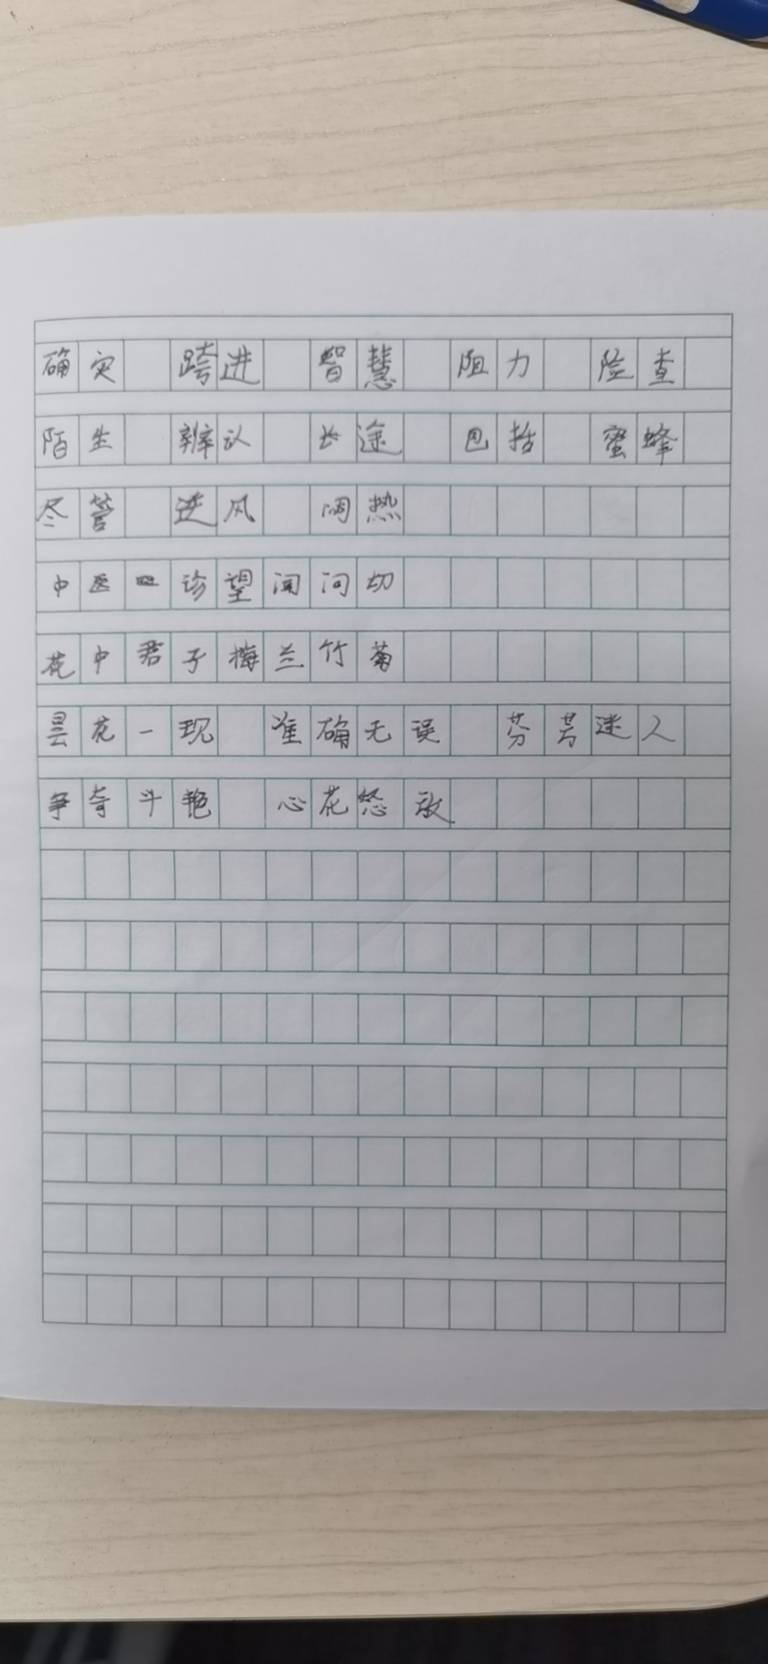 确实 跨进 智慧 阻力 险查
陌生 辨认 长途 包括 蜜蜂
尽管 逆风 闷热
中医四诊望闻问切
花中君子梅兰竹菊
昙花一现 准确无误 芬芳迷人
争奇斗艳 心花怒放